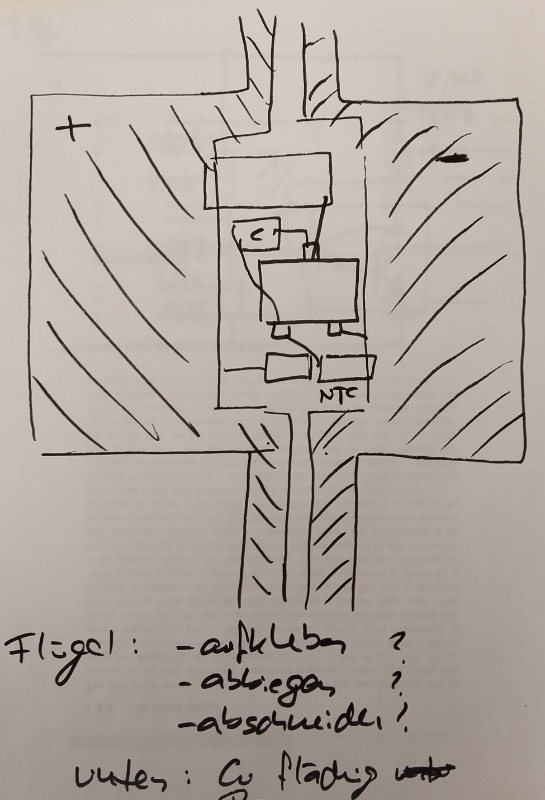 +
-
C
NTC
Flügel: - aufkleben ?
- abbiegen ?
- abschneiden ?
unten: Cu flächig